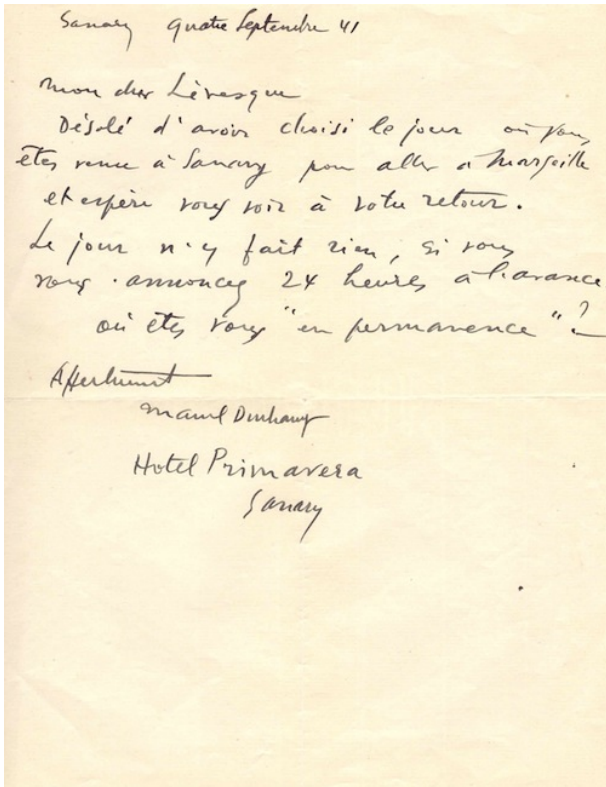 Sanary quatre Septembre 41
Mon cher Lévesque
Désolé d'avoir choisi le jour où vous
êtes venu à Sanary pour aller à Marseille
et espère vous voir à votre retour.
Le jour n'y fait rien, si vous
vous annoncez 24 heures à l'avance
où êtes vous "en permanence"?
Affectueusement
Marcel Duchamp
Hotel Primavera
Sanary